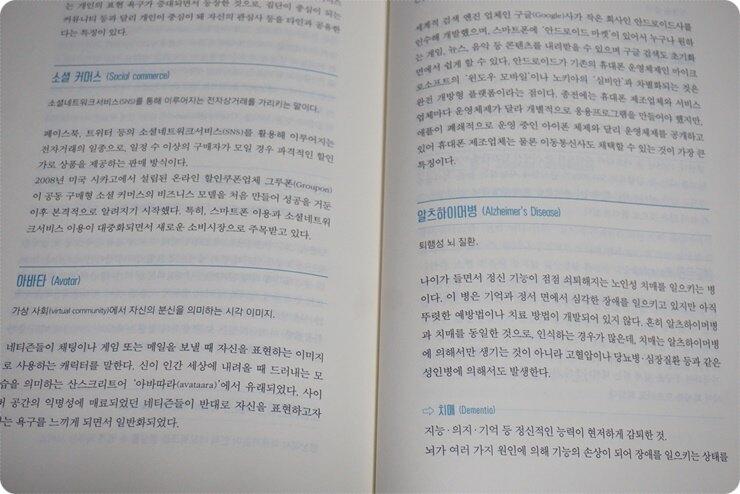 는 개인의 표현 욕구가 증대되면서 등장한 것으로, 집단이 중심이 되는
커뮤니티 등과 달리 개인이 중심이 돼 자신의 관심사 등을 타인과 공유한
다는 특징이 있다.
소셜 커머스 (Social commerce)
소셜네트워크서비스(SNS)를 통해 이루어지는 전자상거래를 가리키는 말이다.
페이스북, 트위터 등의 소셜네트워크서비스(SNS)를 활용해 이루어지는
전자거래의 일종으로, 일정 수 이상의 구매자가 모일 경우 파격적인 할인
가로 상품을 제공하는 판매 방식이다.
2008년 미국 시카고에서 설립된 온라인 할인쿠폰업체 그루폰(Groupon)
이 공동 구매형 소셜 커머스의 비즈니스 모델을 처음 만들어 성공을 거둔
이후 본격적으로 알려지기 시작했다. 특히, 스마트폰 이용과 소셜네트워
크서비스 이용이 대중화되면서 새로운 소비시장으로 주목받고 있다.
아바타 (Avatar)
가상 사회(virtual community)에서 자신의 분신을 의미하는 시각 이미지.
네티즌들이 채팅이나 게임 또는 메일을 보낼 때 자신을 표현하는 이미지
로 사용하는 캐릭터를 말한다. 신이 인간 세상에 내려올 때 드러내는 모
습을 의미하는 산스크리트어 '아바따라(avataara)'에서 유래되었다. 사이
버 공간의 익명성에 매료되었던 네티즌들이 반대로 자신을 표현하고자
는 욕구를 느끼게 되면서 일반화되었다.
세계적 검색 엔진 업체인 구글(Google)사가 작은 회사인 안드로이드사를
인수해 개발했으며, 스마트폰에 '안드로이드 마켓'이 있어서 누구나 원하
는 게임, 뉴스, 음악 등 콘텐츠를 내려받을 수 있으며 구글 검색도 초기화
면에서 쉽게 할 수 있다. 안드로이드가 기존의 휴대폰 운영체제인 마이크
로소프트의 '윈도우 모바일'이나 노키아의 '심비안'과 차별화되는 것은
완전 개방형 플랫폼이라는 점이다. 종전에는 휴대폰 제조업체와 서비스
업체마다 운영체제가 달리 개별적으로 응용프로그램을 만들어야 했지만,
애플이 폐쇄적으로 운영 중인 아이폰 체제와 달리 운영체제를 공개하고
있어 휴대폰 제조업체는 물론 이동통신사도 채택할 수 있는 것이 가장 큰
특징이다.
알츠하이머병 (Alzheimer's Disease)
퇴행성 뇌 질환.
나이가 들면서 정신 기능이 점점 쇠퇴해지는 노인성 치매를 일으키는 병
이다. 이 병은 기억과 정서 면에서 심각한 장애를 일으키고 있지만 아직
뚜렷한 예방법이나 치료 방법이 개발되어 있지 않다. 흔히 알츠하이머병
과 치매를 동일한 것으로, 인식하는 경우가 많은데, 치매는 알츠하이머병
에 의해서만 생기는 것이 아니라 고혈압이나 당뇨병·심장질환 등과 같은
성인병에 의해서도 발생한다.
⇨ 치매 (Dementia)
지능·의지·기억 등 정신적인 능력이 현저하게 감퇴한 것.
뇌가 여러 가지 원인에 의해 기능의 손상이 되어 장애를 일으키는 상태를